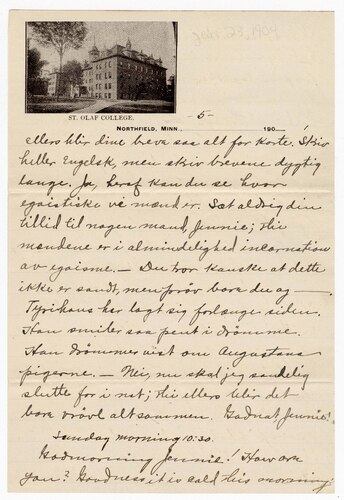 ST. OLAF COLLEGE.
- 5 -
NORTHFIELD, MINN., 190
ellers blir dine breva saa alt for korte. Skriv
heller Engelsk, men skriv brevene dygtig
lange. Ja, heraf kan du se hvor
egoistiske vé mænd er. Sæt aldrig din
tillid til nogen mand, Jennie; thi
mændene er i almindelighed incarnation
av egoisme. — Du tror kanske at dette
ikke er sandt, men prøv bare du og —
has lagt sig for lange siden.
Han smiler saa pent i drömme.
Han drömmer vist om Augustana
pigerne. — Nei, nu skal jeg sandelig
slutte for i nat; thi ellers blir det
bare vrövl altsammen. Godnat, Jennie!
Sunday morning 10:30.
Godmorning Jennie! How are
you? Goodness it is cold this morning;